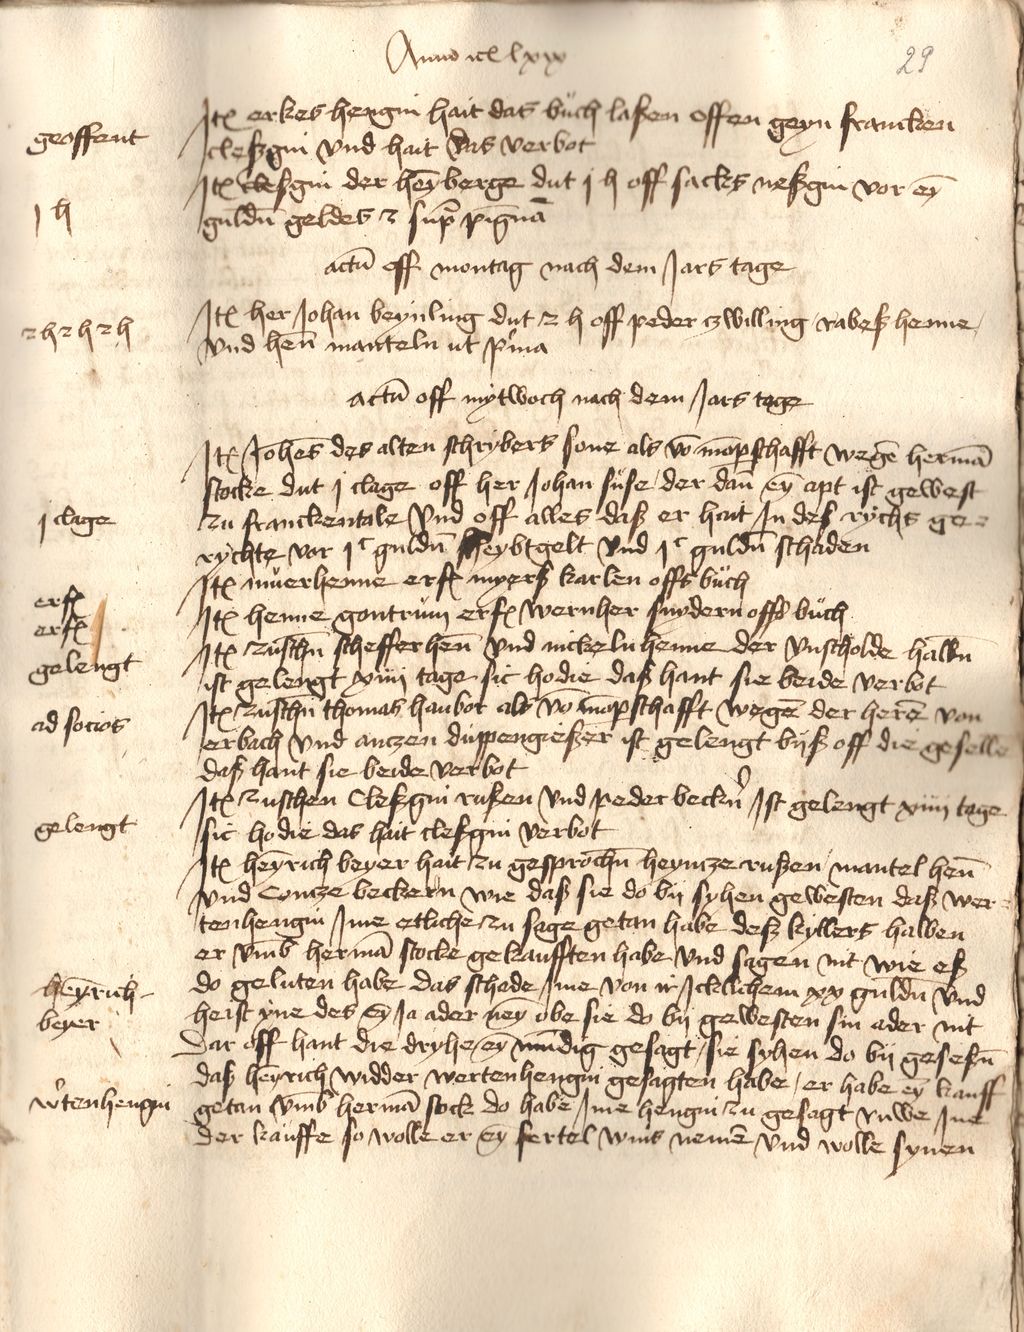 Anno etc lxx
29
geoffent
Itꝫ erkes hengin hait das buͤch laßen offen geyn francken
cleßgin vnd hait das verbot
Itꝫ cleßgin der hey̅berge dut j h off sacks neßgin vor ey̅
j h
guldn̅ geldes 2 sup̅ pigna̅
actu̅ off montag nach dem Jars tage
Itꝫ her Johan beynling dut 2 h off peder zwilling rabeß henne
2 h 2 h 2 h
vnd hen̅ manteln ut p̅ma
actu̅ off mytwoch nach dem Jars tage
Itꝫ Johes̅ des alten schrybers sone als vo̅ mo̅p̅schafft wege̅ herma̅
stocke dut j clage off her Johan suͤse der dan̅ ey̅ apt ist gewest
j clage
zu franckentale vnd off alles daß er hait Jn deß rychs ge-
rychte vor jᶜ guldn̅ heybtgelt vnd jᶜ guldn̅ schaden
Itꝫ muͤerhenne erfꝫ myerß karlen offs buͤch
erfꝫ
Itꝫ henne gontruͤm erfꝫ wernher snydern offs buͤch
erfꝫ
Itꝫ zuschn̅ schefferhen̅ vnd nickeln henne der vnscholde halbn̅
gelengt
ist gelengt xiiij tage sic hodie daß hant sie beide verbot
Itꝫ zuschn̅ thomas haubor als vo̅ mo̅p̅schafft wege̅ der here̅ von
ad socios
erbach vnd anczen duppengießer ist gelengt byß off die geselle
daß hant sie beide verbot
Itꝫ zuschen Cleßgin rußen vnd peder beckn̅ Ist gelengt xiiij tage
gelengt
sic hodie das hait cleßgin verbot
Itꝫ hey̅rich beyer hait zu gesprochn̅ heyncze rußen mantel hen̅
vnd Concze beckern wie daß sie do by syhen gewesten daß wer-
tenhengin Jme etliche zu sage getan habe deß kyllers halben
er vmb̅ herma̅ stocke gekaufften habe vnd sagen nit wie eß
do geluten habe das schade Jme von ir Icklichem xx guldn̅ vnd
hey̅rich
heist yne des ey̅ Ja ader ney̅ obe sie do by gewesten sin ader nit
beyer
Dar off hant die dryhe ey̅ mu̅dig gesagt sie syhen do by geseßn̅
daß hey̅rich widder wertenhengin gesagten habe er habe ey̅ kauff
w̓tenhengin
getan vmb̅ herma̅ stock do habe Jme hengin zu gesagt ruwe Jne
der kauffe so wolle er ey̅ fertel wins neme̅ vnd wolle synen